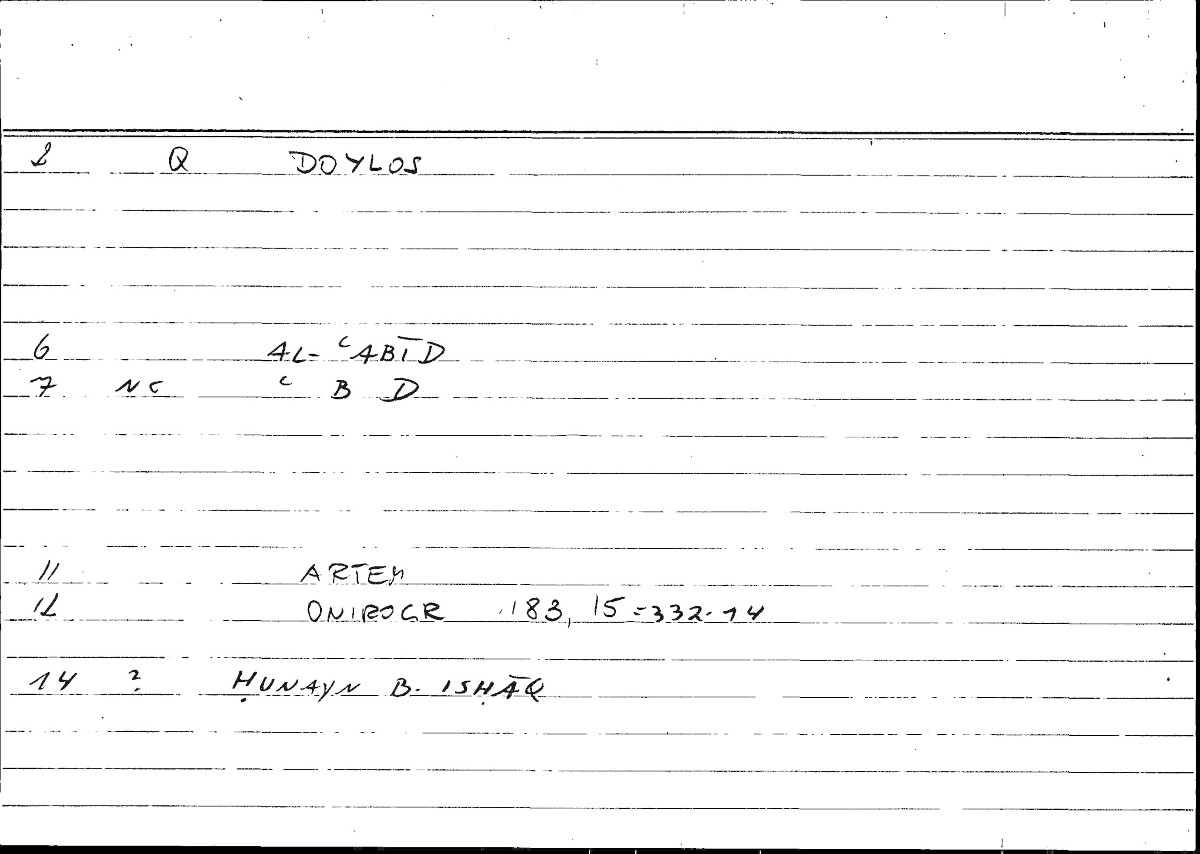 1 Q DOYLOS
6 AL-ʿABĪD
7 NC ʿ B D
11 ARTEM
12 ONIROCR 183, 15=332.14
14 ? ḤUNAYN B. ISḤĀQ